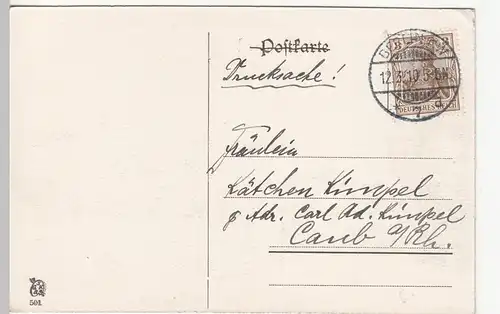 Postkarte
Drucksache!
BERLIN
12.3.10 5-6N
DEUTSCHES REICH
Fräulein
Kätchen Kimpel
p Adr. Carl Ad. Kimpel
Caub a/Rh.
501